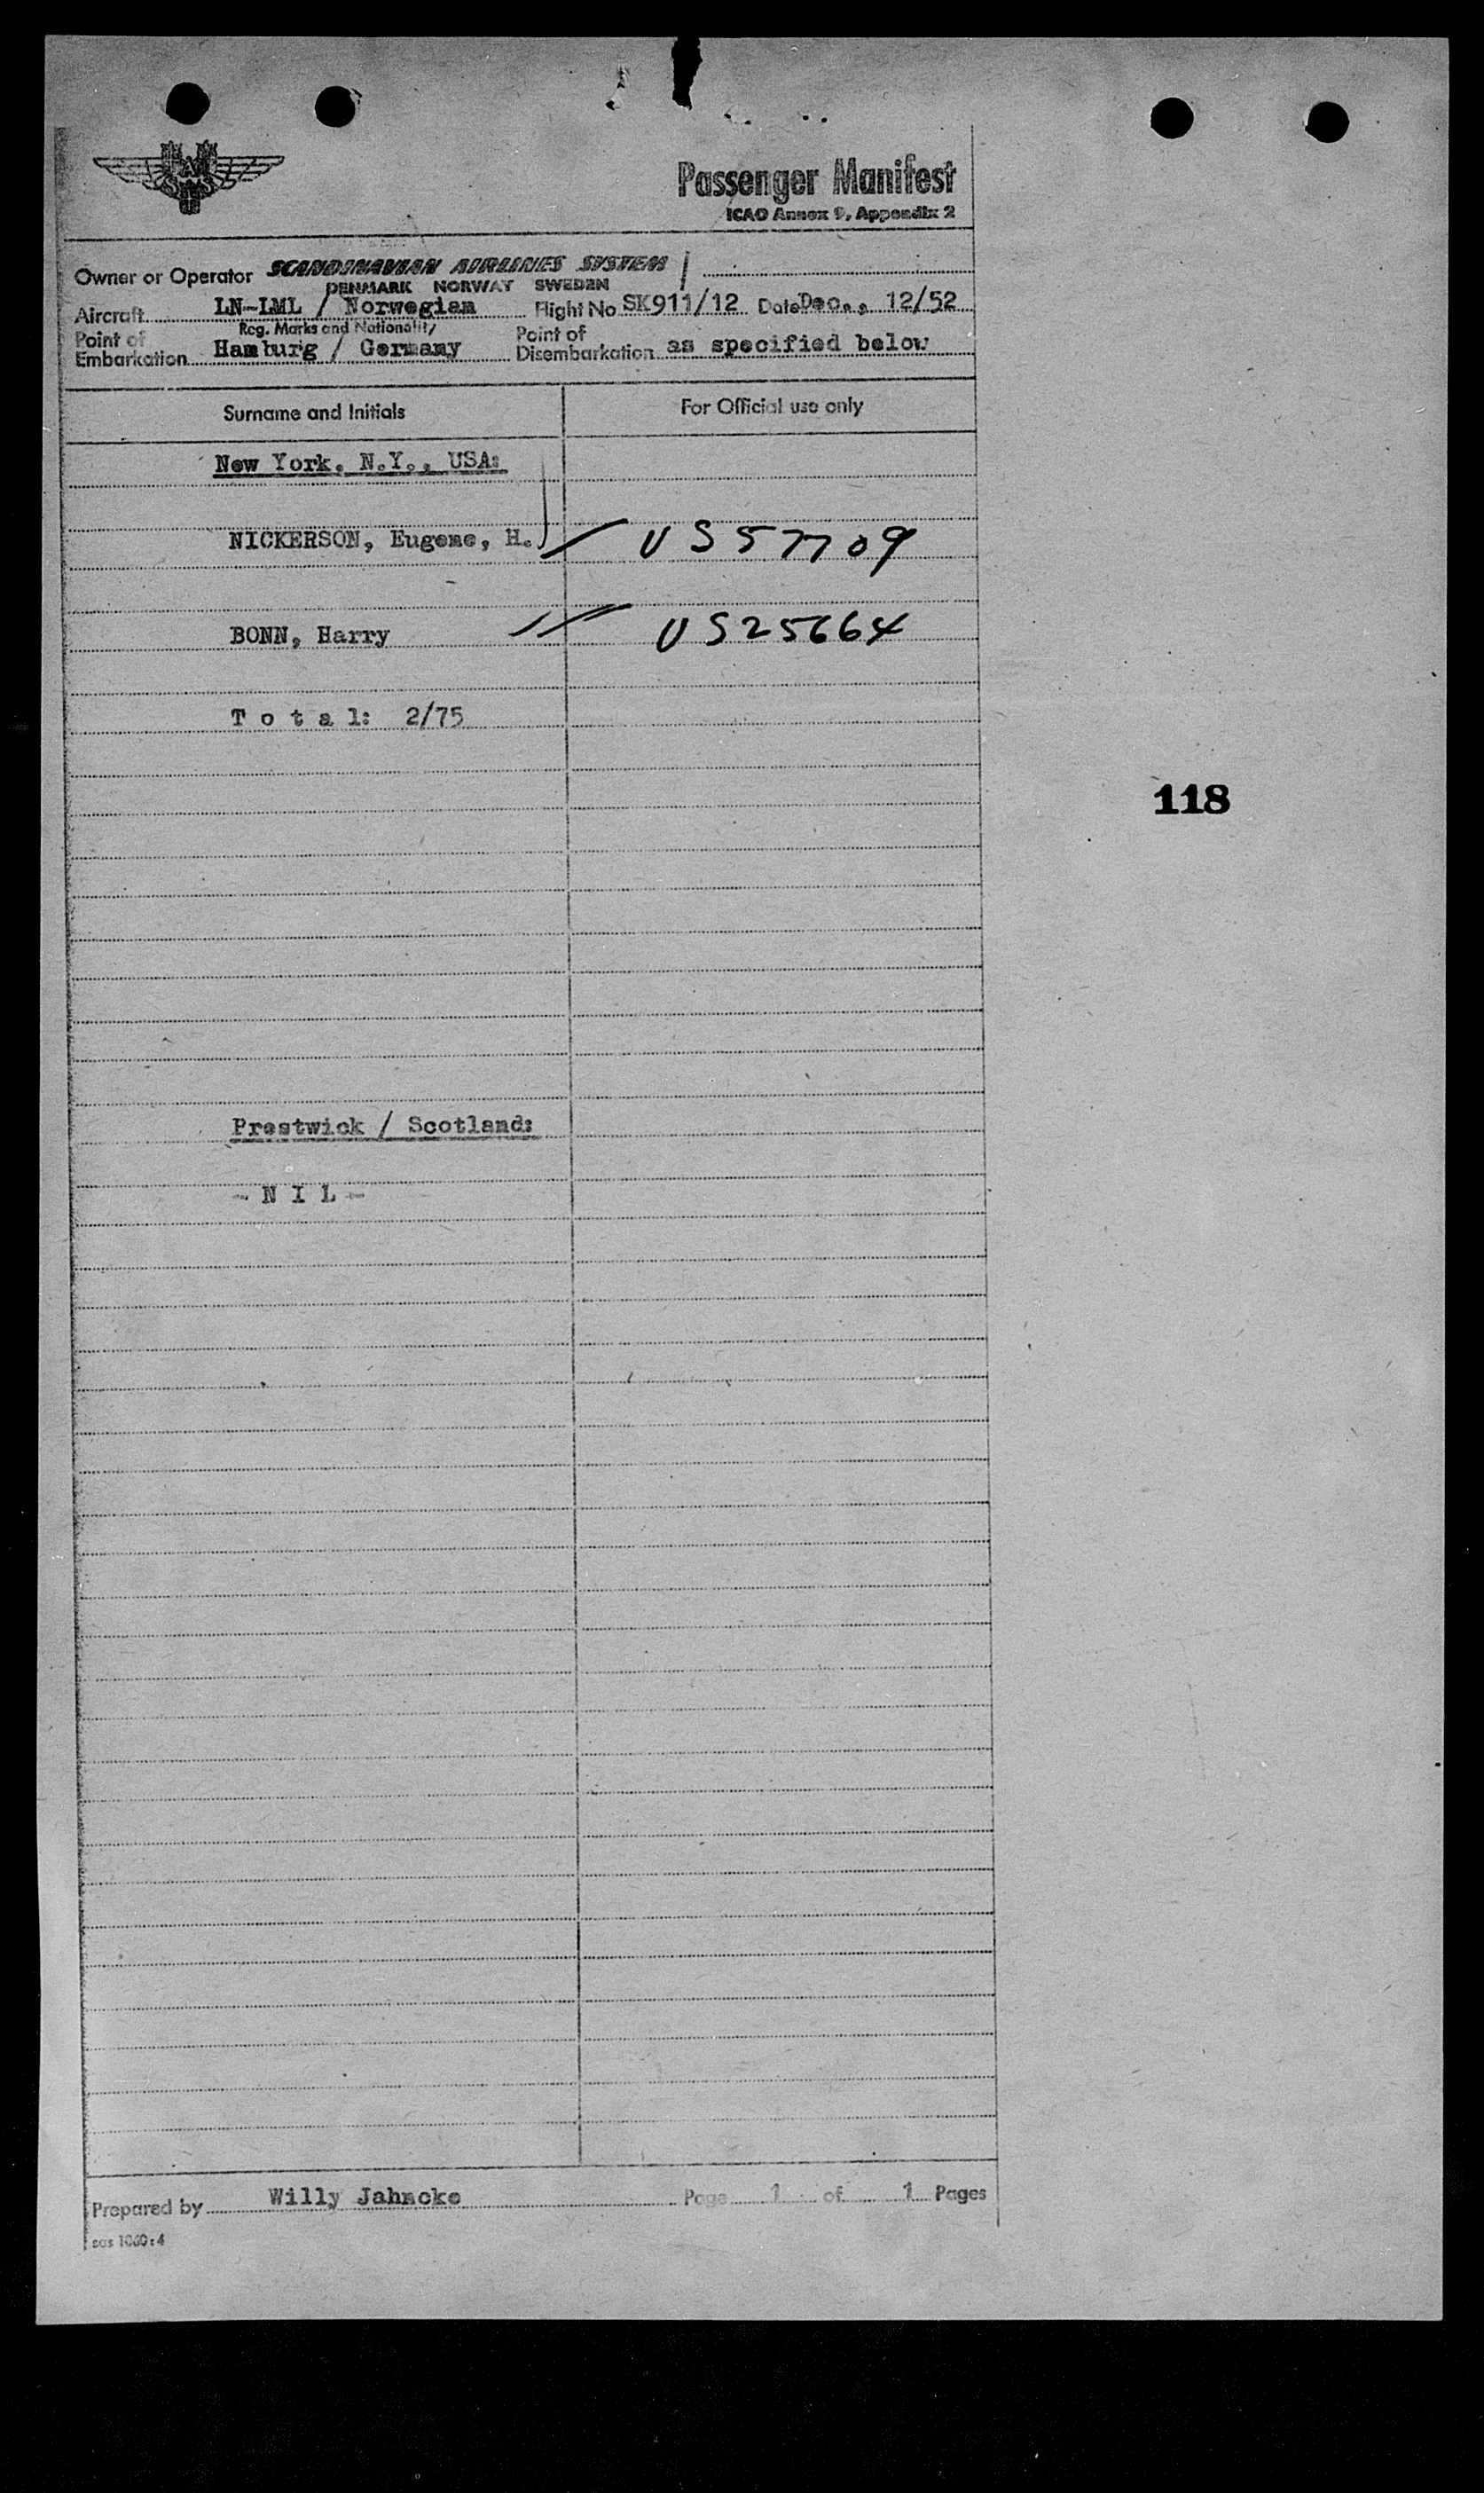 SAS
Passenger Manifest
ICAO Annex 9, Appendix 2
Owner or Operator SCANDINAVIAN AIRLINES SYSTEM
DENMARK NORWAY SWEDEN
Aircraft LN-LML / Norwegian Flight No SK911/12 Date Dec., 12/52
Reg. Marks and Nationality
Point of Embarkation Hamburg / Germany Point of Disembarkation as specified below
Surname and Initials For Official use only
New York, N.Y., USA:
NICKERSON, Eugene, H. US57709
BONN, Harry US25664
T o t a l: 2/75
118
Prestwick / Scotland:
- N I L -
Prepared by Willy Jahncke Page 1 of 1 Pages
sas 1060:4